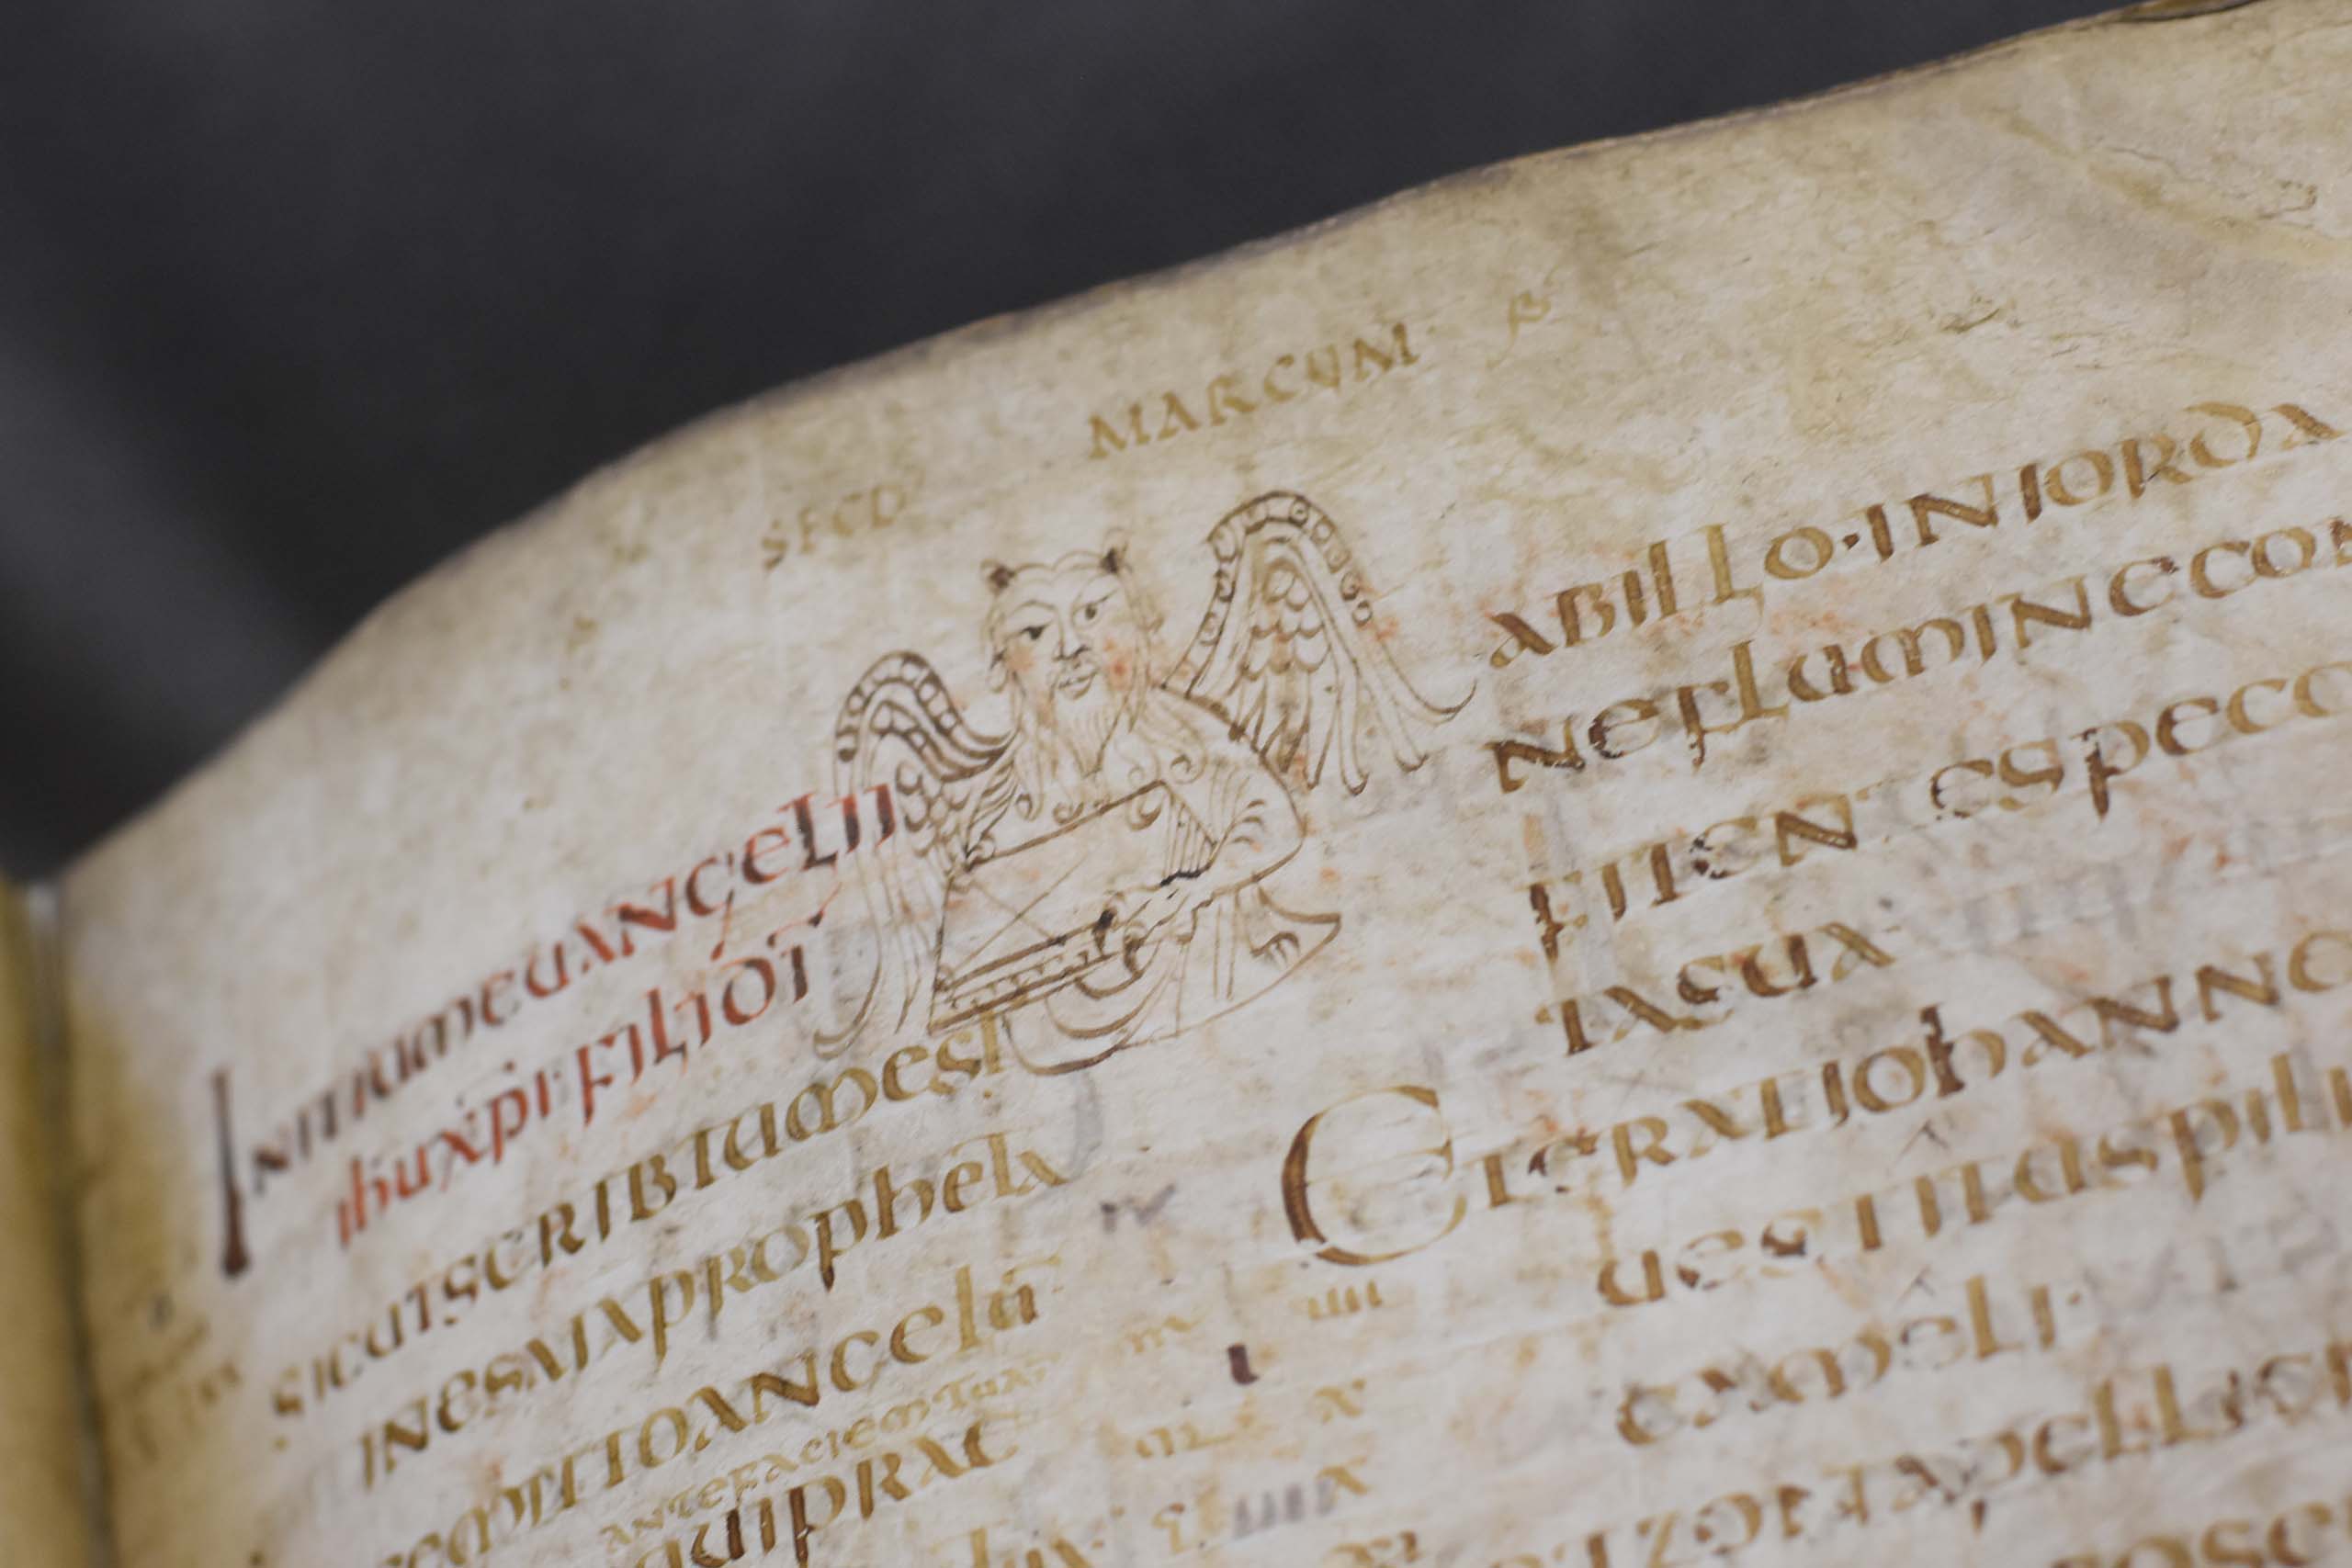 SECD' MARCUM·
INITIUMEUANGELII
ihuxpi·FILIIDI
SICUTSCRIBTUMEST
INESAIAPROPHETA
ANGELU
ANTEFACIEMTUA
QUIPRAE
ABILLO·INIORDA
NEFLUMINECON
FITEN ESPECCA
TASUA·
ETERATIOHANNE
UESTITUSPILI
CAMELI·